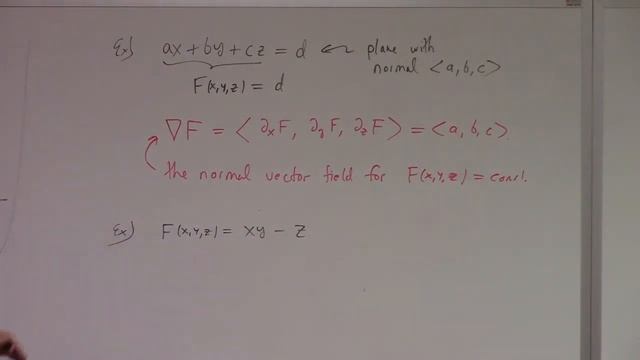 Ex) ax + by + cz = d ← plane with
normal <a, b, c>
F(x,y,z) = d
∇F = <∂xF, ∂yF, ∂zF> = <a, b, c>.
the normal vector field for F(x,y,z) = const.
Ex) F(x,y,z) = xy − z